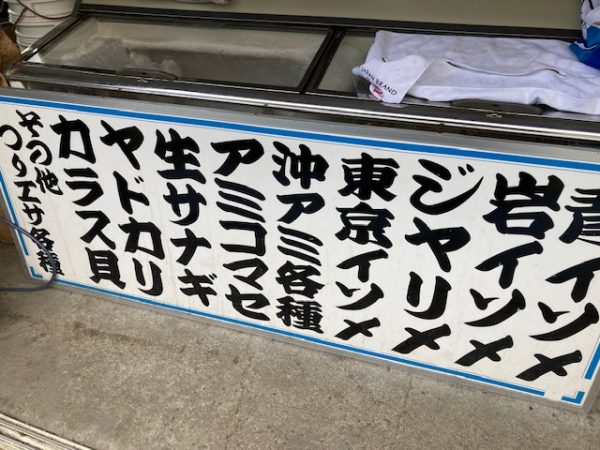 青イソメ
岩イソメ
ジャリメ
東京イソメ
沖アミ各種
アミコマセ
生サナギ
ヤドカリ
カラス貝
その他
つりエサ各種